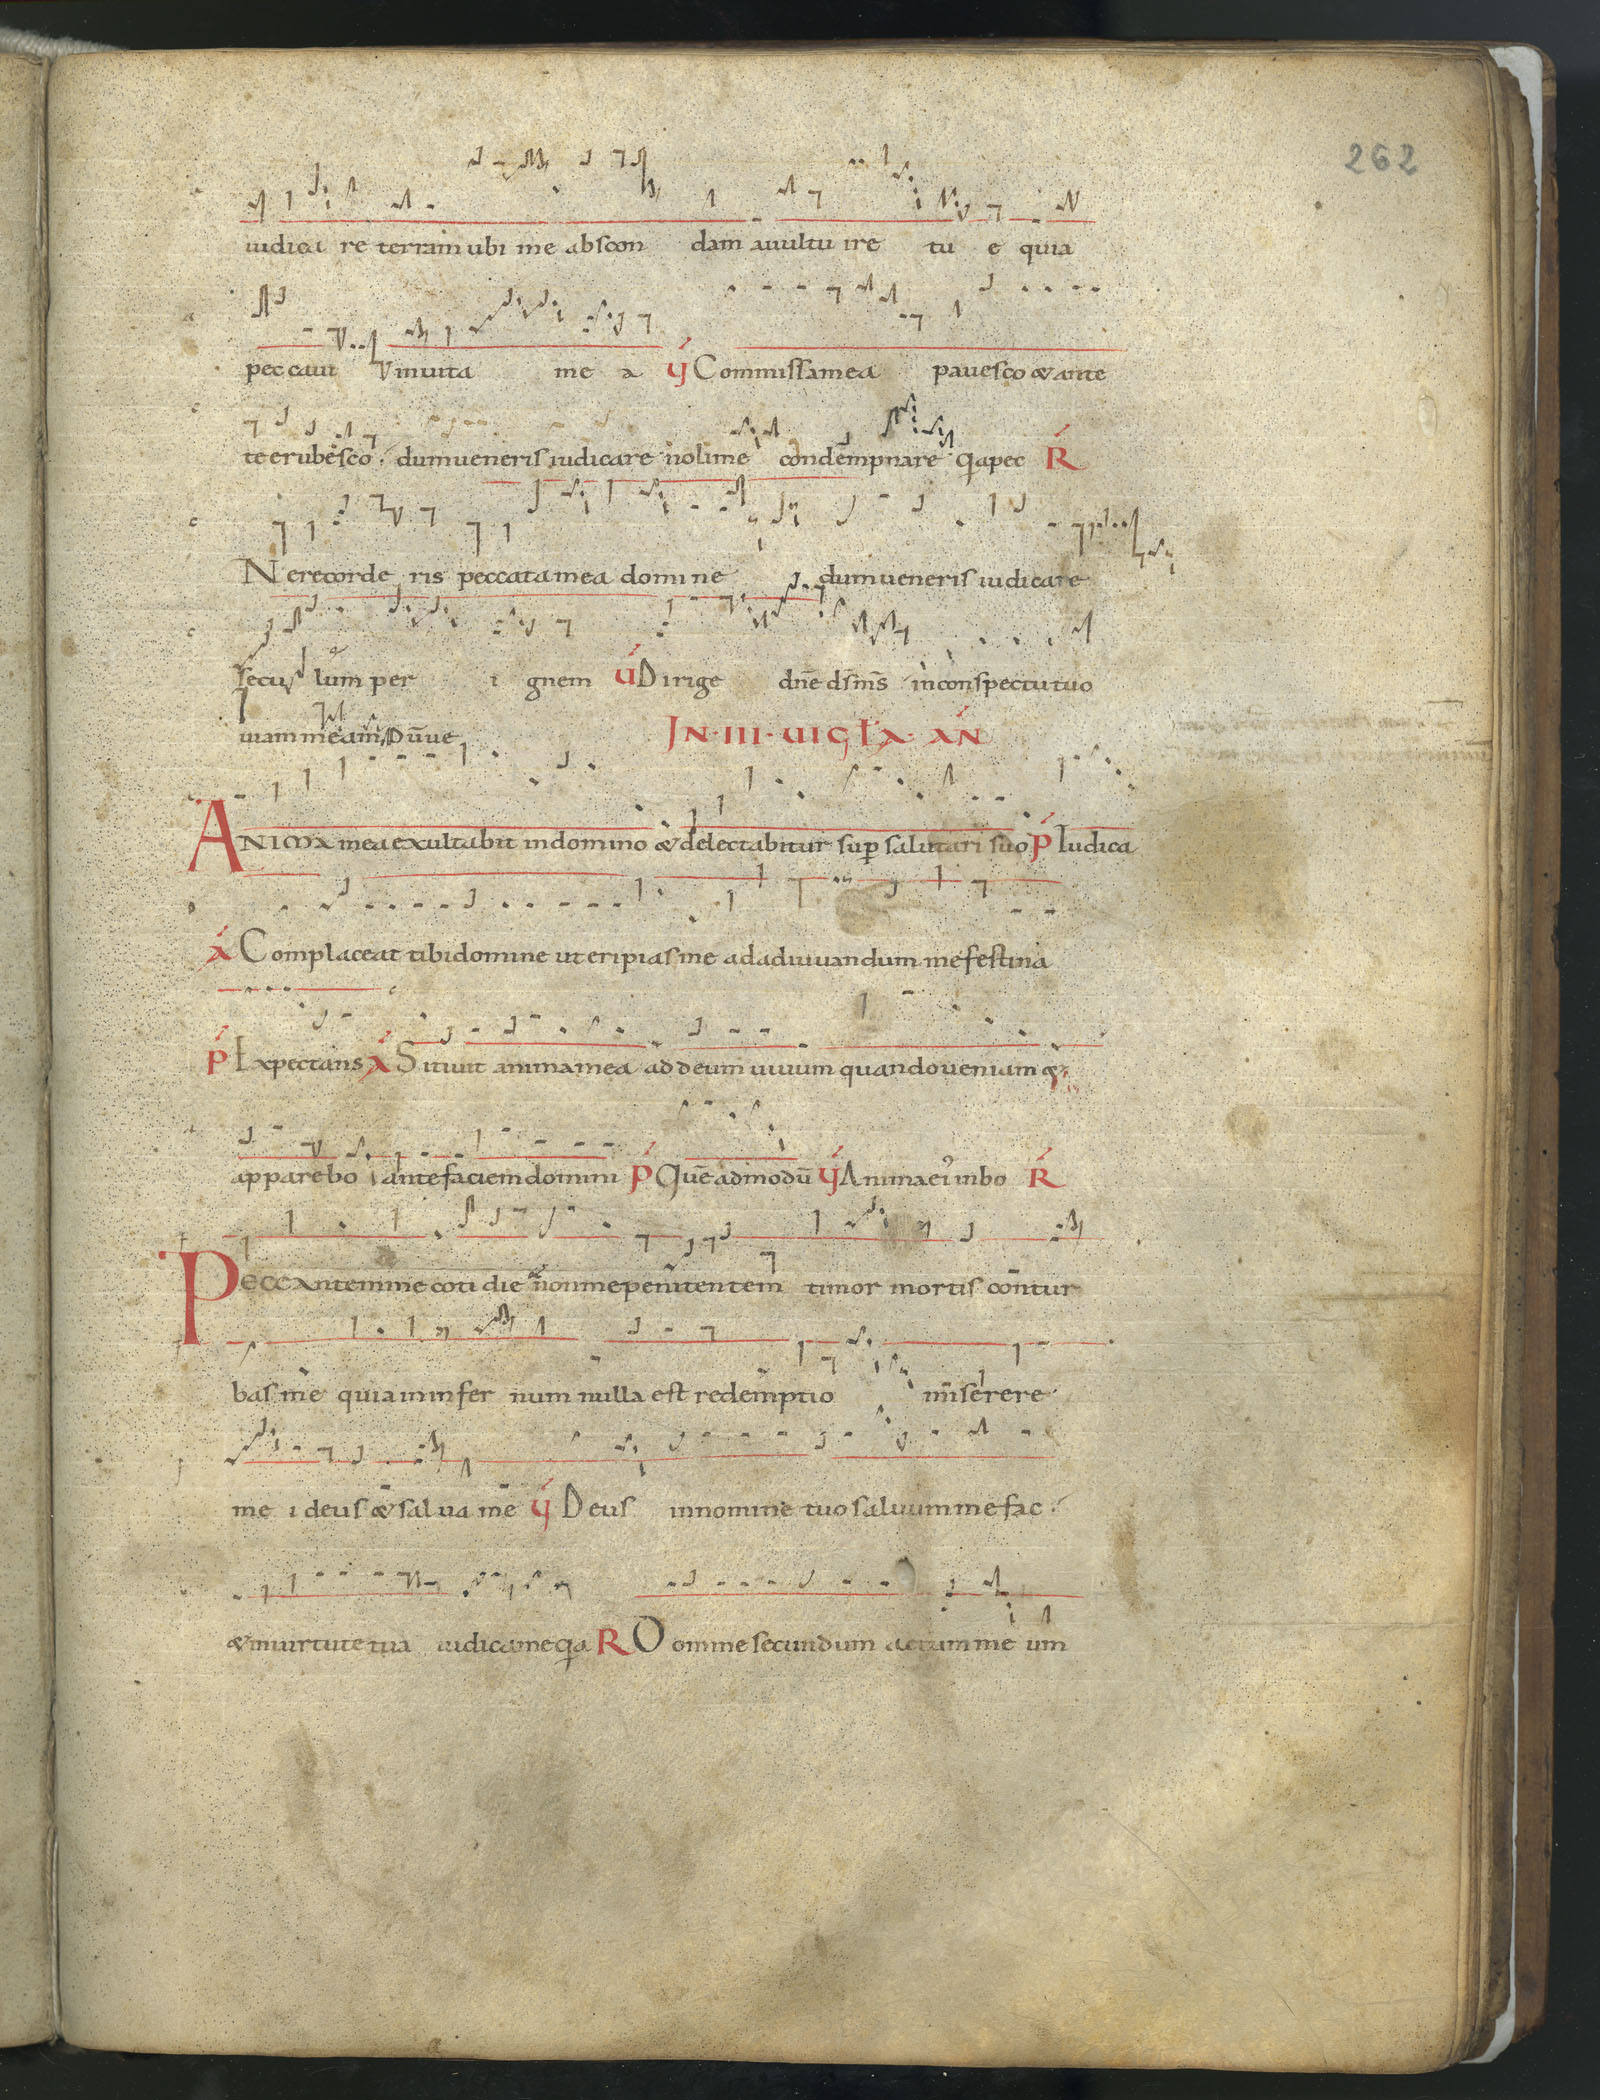 262
iudica re terram ubi me abscon dam auultu ire tu e quia
peccaui inuita me a ℣ Commissa mea pauesco & ante
te erubesco dum ueneris iudicare noli me condempnare q̄a pec ℟
Ne recorde ris peccata mea domine dum ueneris iudicare
secu lum per i gnem ℣ Dirige dn̄e ds̄ ms̄ in conspectu tuo
uiam meam Dū ue IN · III · UIGLA · AN
ANIMA mea exultabit in domino & delectabitur sup salutari suo P Iudica
A Complaceat tibi domine ut eripias me ad adiuuandum me festina
P Expectans A Sitiuit anima mea ad deum uiuum quando ueniam &
apparebo ante faciem domini P Quē admodū ℣ Anima ei inbo ℟
PECCANTEM me cotidie & non me penitentem timor mortis contur
bas me quia in infer num nulla est redemptio miserere
me i deus & salua me ℣ Deus in nomine tuo saluum me fac
& in uirtute tua iudica me q̄a ℟ Domine secundum actum me um